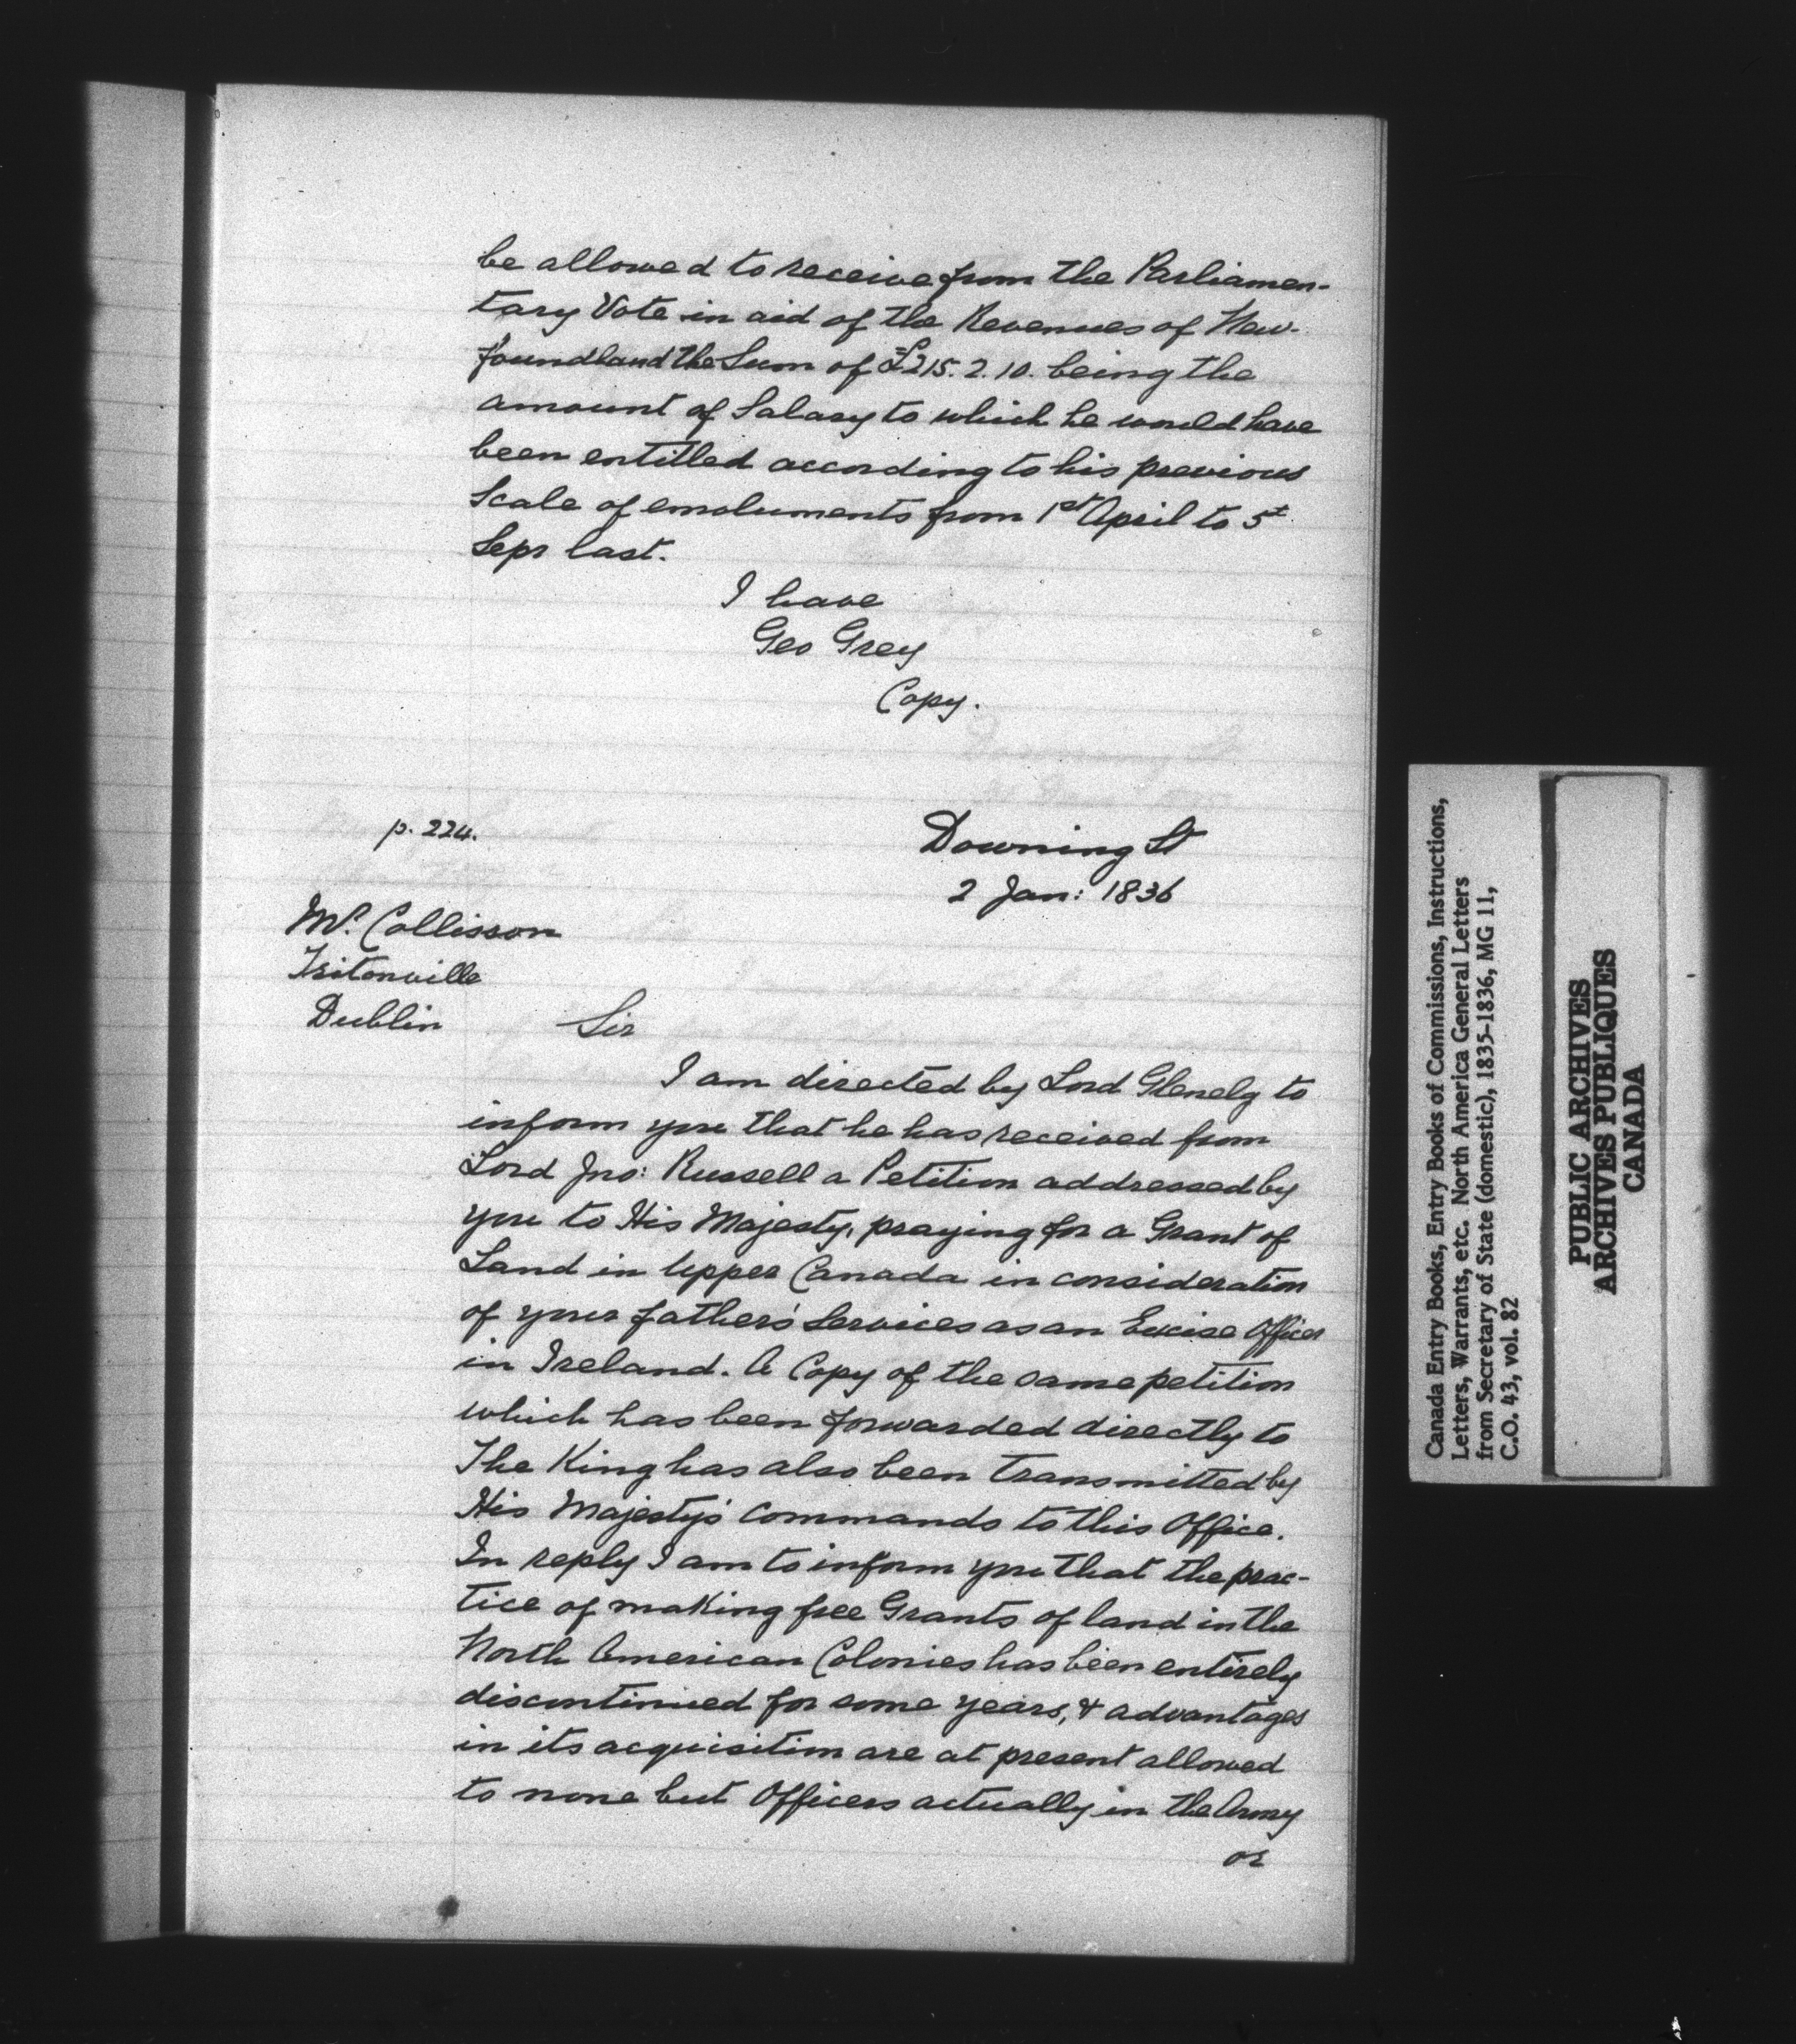 be allowed to receive from the Parliamen-
tary Vote in aid of the Revenues of New-
foundland the Sum of £215.2.10. being the
amount of Salary to which he would have
been entitled according to his previous
Scale of emoluments from 1st April to 5t
Sepr last.
I have
Geo Grey
Copy.
p. 224.
Downing St
2 Jan: 1836
Mr. Collisson
Tritonville
Dublin
Sir
I am directed by Lord Glenelg to
inform you that he has received from
Lord Jno: Russell a Petition addressed by
you to His Majesty, praying for a Grant of
Land in Upper Canada in consideration
of your father's Services as an Excise Officer
in Ireland. A Copy of the same petition
which has been forwarded directly to
The King has also been transmitted by
His Majesty's Commands to this Office.
In reply I am to inform you that the prac-
tice of making free Grants of land in the
North American Colonies has been entirely
discontinued for some years, & advantages
in its acquisition are at present allowed
to none but Officers actually in the Army
or
Canada Entry Books, Entry Books of Commissions, Instructions,
Letters, Warrants, etc. North America General Letters
from Secretary of State (domestic), 1835-1836, MG 11,
C.O. 43, vol. 82
PUBLIC ARCHIVES
ARCHIVES PUBLIQUES
CANADA